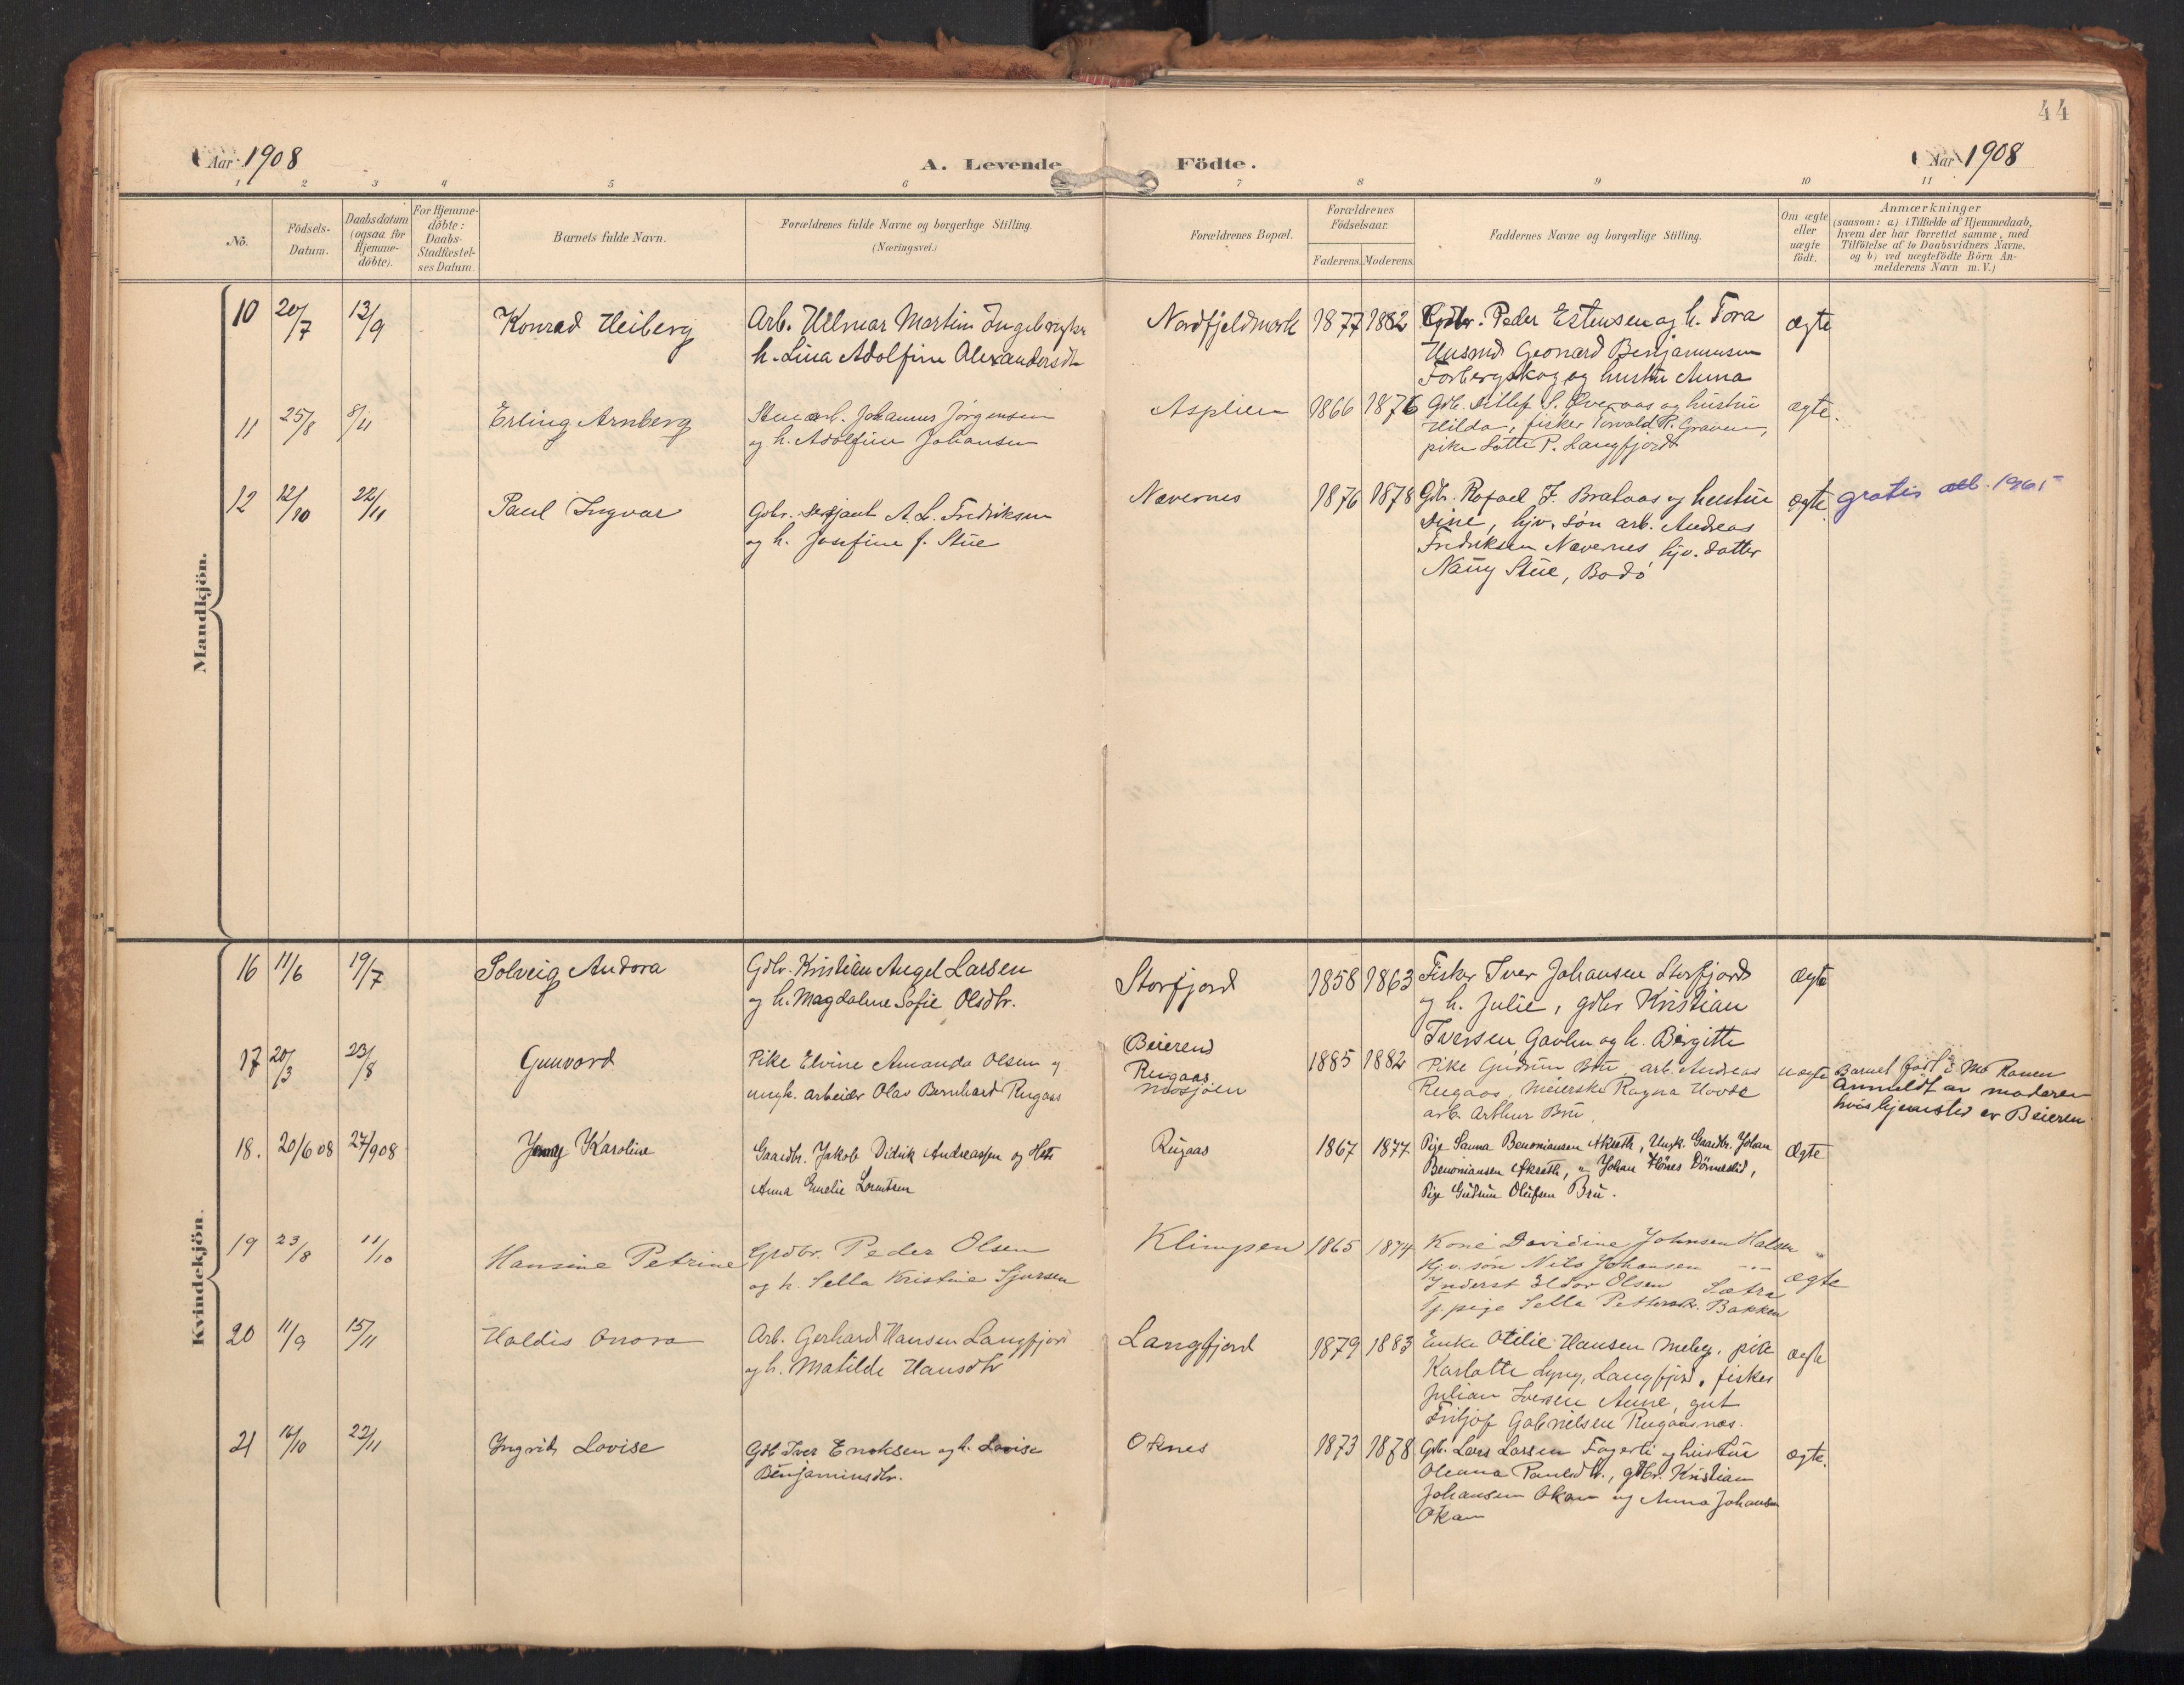 44
Aar 1908
A. Levende
Födte.
Aar 1908
1 2 3 4 5 6 7 8 9 10 11
No.
Födsels-
Datum.
Daabsdatum
(ogsaa for
Hjemme-
döbte).
For Hjemme-
döbte:
Daabs-
Stadfæstel-
ses Datum.
Barnets fulde Navn.
Forældrenes fulde Navne og borgerlige Stilling.
(Næringsvei.)
Forældrenes Bopæl.
Forældrenes
Födselsaar.
Faderens. Moderens.
Faddernes Navne og borgerlige Stilling.
Om ægte
eller
uægte
födt.
Anmærkninger
(saasom: a) i Tilfælde af Hjemmedaab,
hvem der har forrettet samme, med
Tilföielse af to Daabsvidners Navne.
og b) ved uægtefödte Börn An-
melderens Navn m. V.)
Mandkjön.
10 20/7 13/9 Konrad Heiberg
Arb. Hilmar Martin Ingebrigtsn
h. Lina Adolfine Alexandersdtr
Nordfjeldmark 1877 1882
Gdbr. Peder Estensen og h. Tora
Husmd Geonard Benjaminsen
Forbergskog og hustru Anna
ægte
11 25/8 8/11 Erling Arnberg
Stenarb. Johannes Jørgensen
og h. Adolfine Johansen
Asplien 1866 1876
Gdb. Detlef S. Øveraas og hustru
Hilda, fisker Torvald R. Graven,
pike Lotte P. Langfjord
ægte.
12 12/10 22/11 Paul Ingvar
Gdbr. Sersjant A. L. Fredriksen
og h. Josefine f. Stue
Nævernes 1876 1878
Gdbr. Rafael J. Brataas og hustru
Dine, hjv. søn arb. Andreas
Fredriksen Nævernes, hjv. datter
Nanny Stue, Bodø
ægte.
gratis att. 1961
Kvindekjön.
16 11/6 19/7 Solveig Andora
Gdbr. Kristian Angel Larsen
og h. Magdalene Sofie Olsdtr.
Storfjord 1858 1863
Fisker Iver Johansen Storfjord
og h. Julie, gdbr Kristian
Iverssen Gavlen og h. Birgitte
ægte
17 20/3 23/8 Gunvord
Pike Elvine Amanda Olsen og
ungk. arbeider Olav Bernhard Rugaas
Beieren
Rugaas
Mosjøen
1885 1882
Pike Gudrun Bru, arb. Andreas
Rugaas, Meierske Ragna Hovde
arb. Arthur Bru
uægte
Barnet født i Mo Ranen
Anmeldt av moderen
hvis hjemsted er Beieren.
18. 20/6 08 27/9 08 Jenny Karoline
Gaardbr. Jakob Didrik Andreassen og Hstr
Anna Emelie Lorntsen
Rugaas 1867 1877
Pige Sanna Benoniansen Akseth, Ungk. Gaardbr. Johan
Benoniansen Akseth, " Johan Hönes Dörmeslid,
Pige Gudrun Olufsen Bru.
Ægte
19 23/8 11/10 Hansine Petrine
Grdbr. Peder Olsen
og h. Sella Kristine Sjursen
Klimpen 1865 1874
Kone Davidine Johnsen Halsen
Hj.v. søn Nils Johansen
Inderst Eldor Olsen Sætra
Tj. pige Sella Pettersdr. Bakken
ægte
20 11/9 15/11 Haldis Onora
Arb. Gerhard Hansen Langfjord
og h. Matilde Hansdtr
Langfjord 1879 1883
Enke Otilie Hansen Meløy, pike
Karlotte Lyng, Langfjord, fisker
Julian Iversen Aune, gut
Fritjof Gabrielsen Rugaasnes.
ægte
21 16/10 22/11 Ingrid Lovise
Gdb Iver Enoksen og h. Lovise
Benjaminsdtr.
Osnes 1873 1878
Gdb. Lars Larsen Fagerli og hustru
Oleana Paulsdtr., gdbr. Kristian
Johansen Okan og Anna Johansen
Okan
ægte.